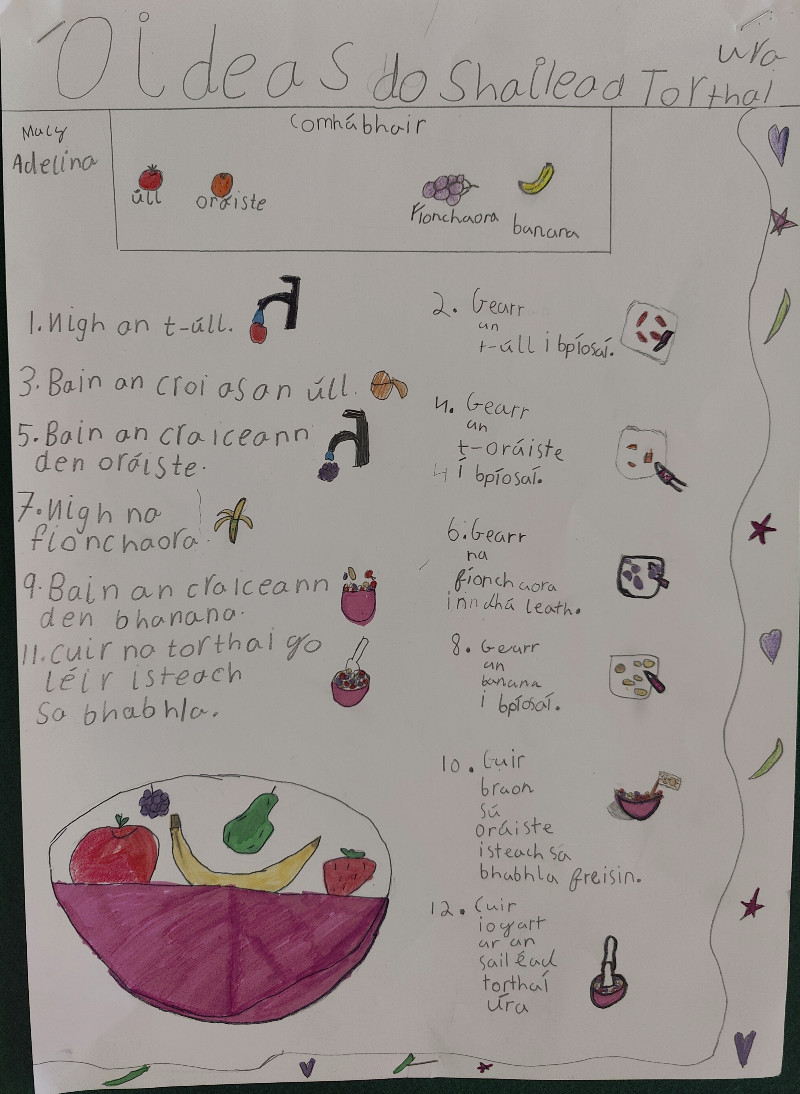 Oideas do Shailead Torthaí
úra
Macy
Adelina
Comhábhair
úll
oráiste
fíonchaora
banana
1. Nigh an t-úll.
2. Gearr
an
t-úll i bpíosaí.
3. Bain an croi as an úll.
4. Gearr
an
t-oráiste
i bpíosaí.
5. Bain an craiceann
den oráiste.
6. Gearr
na
fíonchaora
inn dhá leath.
7. Nigh na
fíonchaora
8. Gearr
an
banana
i bpíosaí.
9. Bain an craiceann
den bhanana.
10. Cuir
braon
sú
oráiste
isteach sa
bhabhla freisin.
11. Cuir na torthaí go
léir isteach
sa bhabhla.
12. Cuir
iogart
ar an
sailéad
torthaí
úra